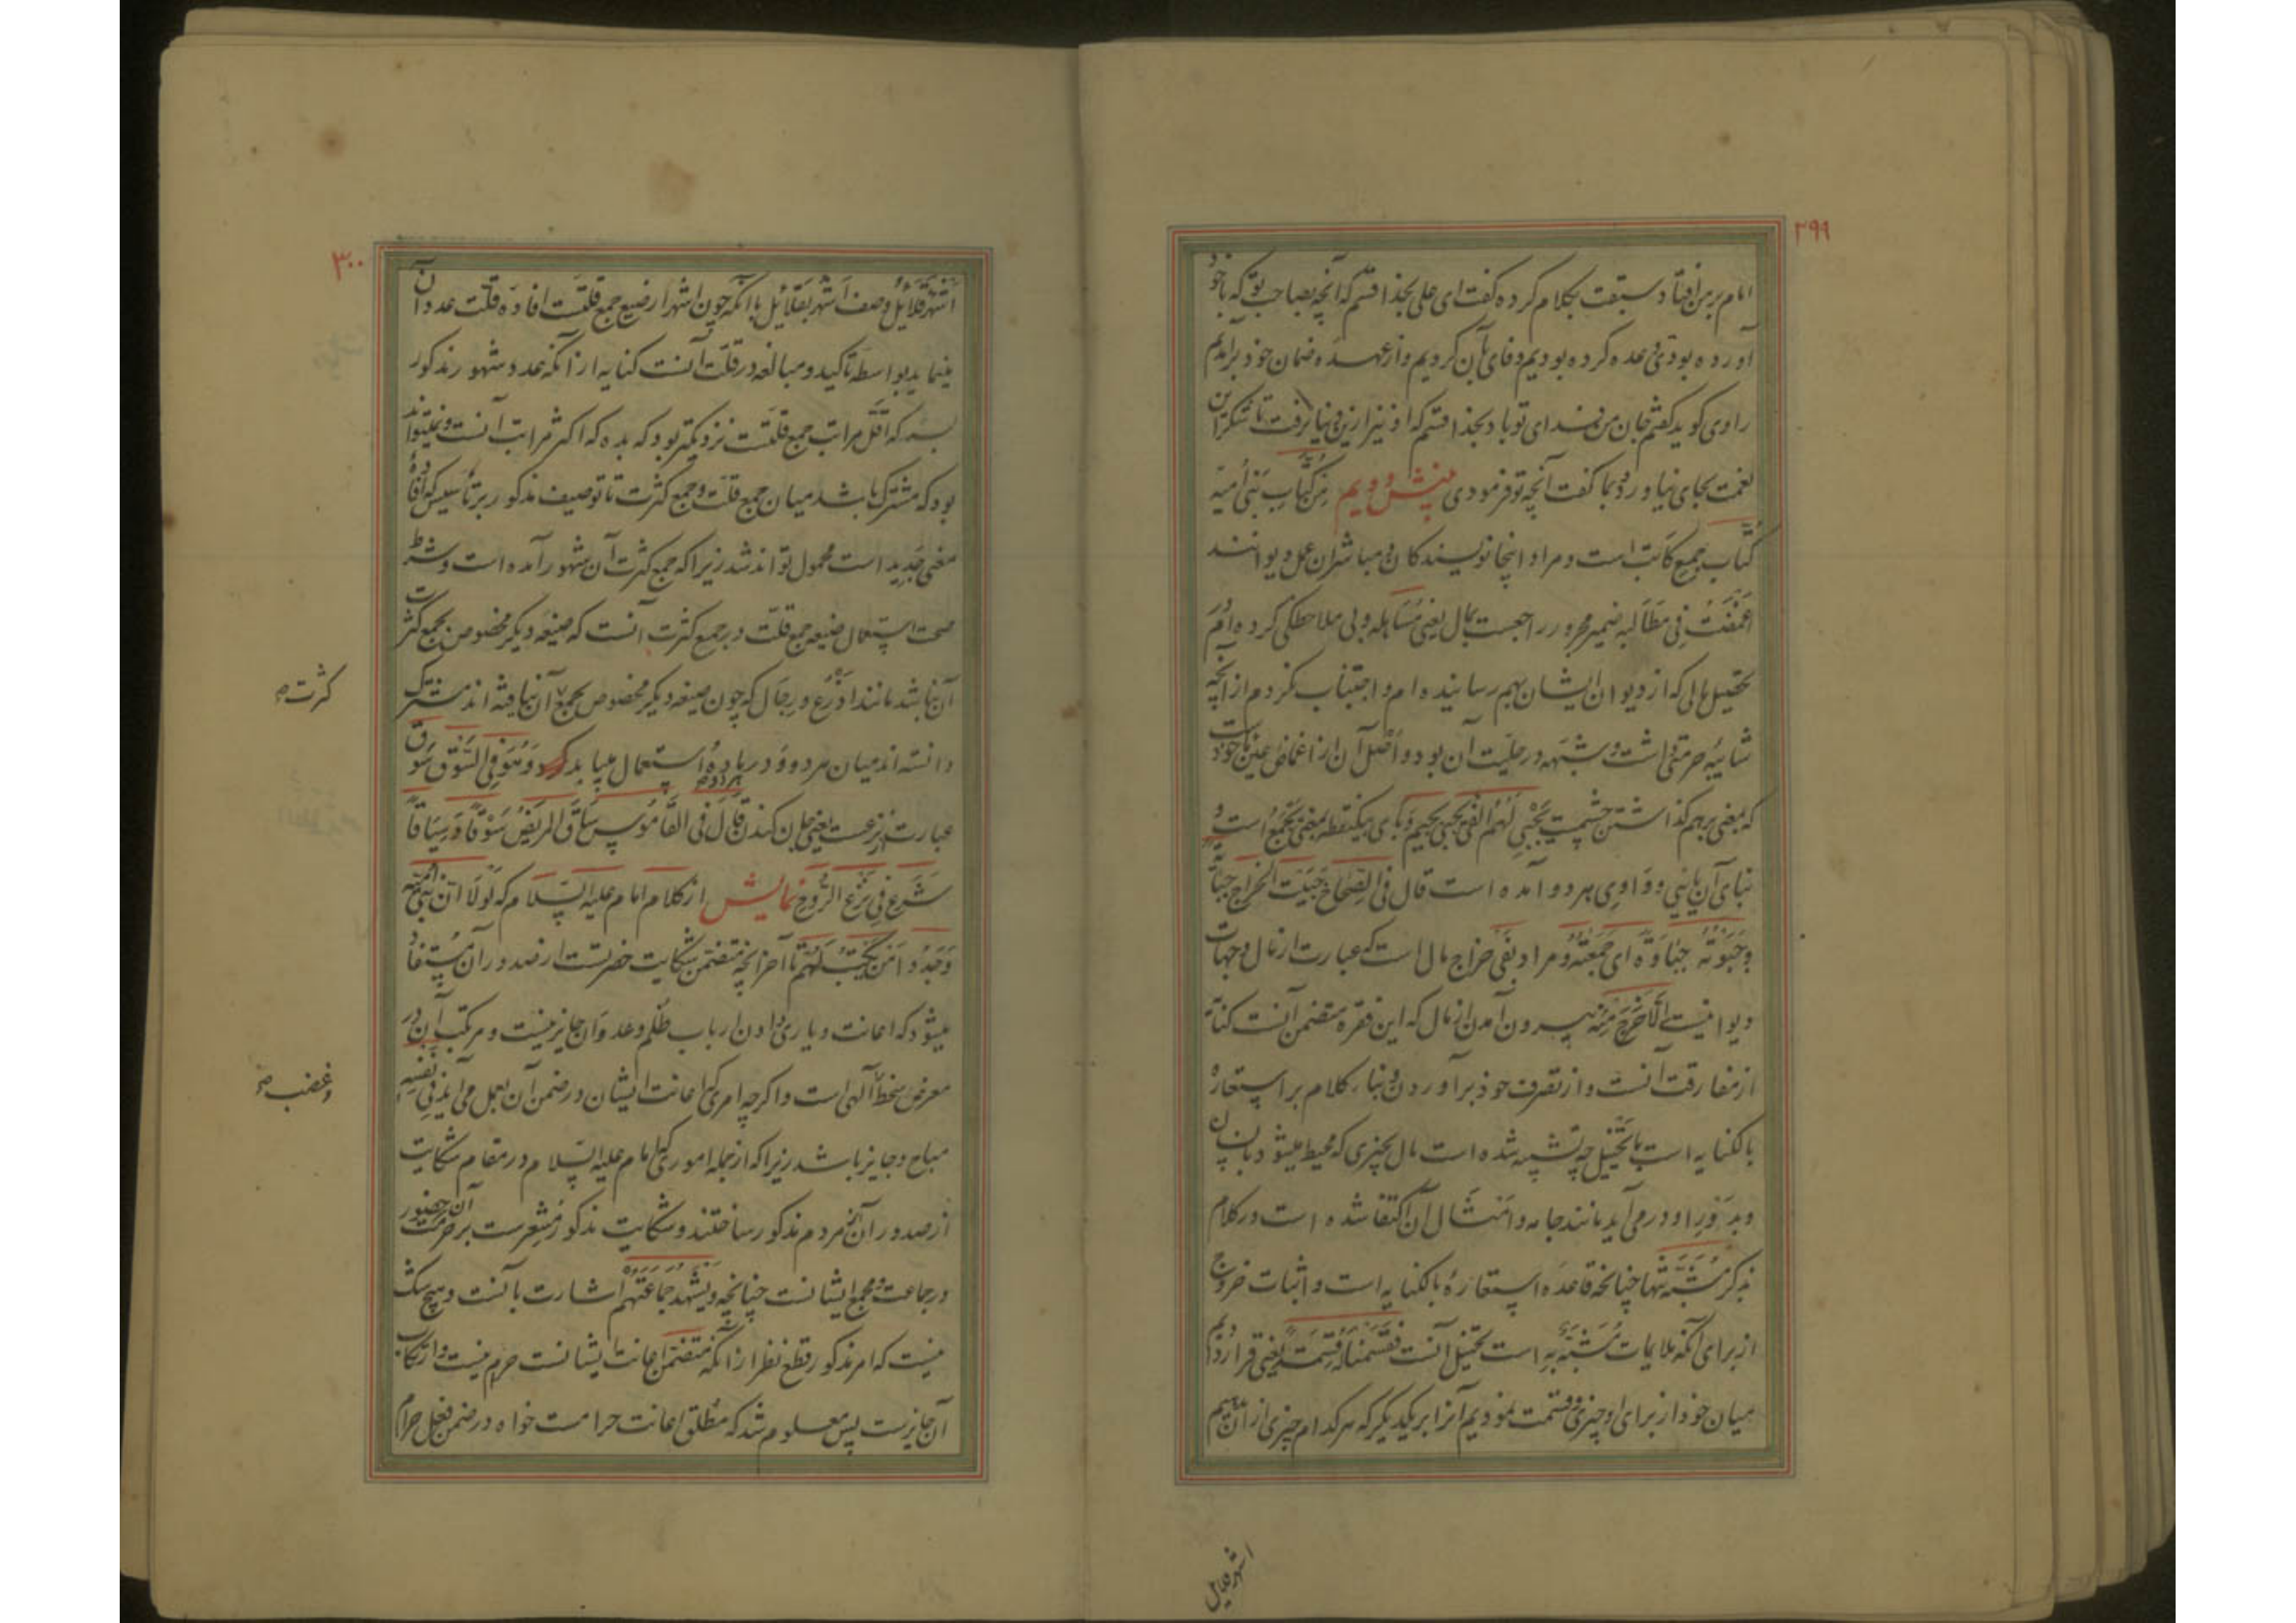 ۲۹۹
امام بر من افتاد سبقت بکلام کرده گفت ای علی بخدا قسم که آنچه بصاحب تو که با خود
آورده بودی وعده کرده بودیم وفای بآن کردیم و از عهده ضمان خود برآمدیم
راوی کوید کفتم جان من فدای تو باد بخدا قسم که او نیز از این دنیا نرفت تا شکر این
نعمت بجای نیاورد و بما گفت آنچه تو فرمودی بینش دویم مِن کُتّابِ بَنی اُمیّه
کُتّاب جمع کاتب است و مراد اینجا نویسندکان و مباشران عمل دیوانند
اَغمَضتُ فی مَطالبِه ضمیر مجرور راجعست بمال یعنی مساهله و بی ملاحظکی کرده ام در
تحصیل مالی که از دیوان ایشان بهم رسانیده ام و اجتناب نکردم از آنچه
شایبه حرمتی داشت و شبهه در حلیت آن بود و اصل آن از اغماض عین ماخوذست
که بمعنی برهم گذاشتن چشمست یَجبی لَهُم الفَی یجبی بجیم و بای بیکنقطه بمعنی یَجمَعُ است و
بنای آن یائی و واوی هر دو آمده است قال فی الصّحاح جَبَیتُ الخراج جبایةً
و جَبَوتُه جِباوَةً ای جَمَعتُه و مراد بفی خراج مال است که عبارت از مال و جهات
دیوانیست اِلّا خَرَجَ مِنه بیرون آمدن از مال که این فقره متضمن آنست کنایه
از مفارقت آنست و از تصرف خود برآوردن و بنا کلام بر استعاره
بالکنایه است با تخییل چه تشبیه شده است مال بچیزی که محیط میشود بانسان
و بدَورِ او درمی آید مانند جامه و امثال آن اکتفا شده است در کلام
بذکر مُشَبَّه تنها چنانچه قاعده استعاره بالکنایه است و اثبات خروج
از برای آنکه ملایمات مُشَبَّهٌ بِه است تخییل آنست فَقَسَمنا لَه قِسمَةً یعنی قرار دادیم
میان خود از برای او چیزی و قسمت نمودیم آنرا بر یکدیگر که هر کدام چیزی از آن بدهیم
اشهر قلایل
۳۰۰
اَشهُر قَلایُل وصف اَشهُر بقلائل با آنکه چون اشهر از صیغ جمع قلتست افاده قلت عدد آن
مینماید بواسطه تأکید و مبالغه در قلت آنست کنایه از آنکه عدد شهور مذکور
بسه که اقلّ مراتب جمع قلتست نزدیکتر بود که بده که اکثر مراتب آنست و نمیتواند
بود که مشترک باشد میان جمع قلت و جمع کثرت تا توصیف مذکور بر تأسیس که افاده
معنی جدید است محمول تواند شد زیرا که جمع کثرت آن شهور آمده است و شرط
صحت استعمال صیغه جمع قلت در جمع کثرت آنست که صیغه دیگر مخصوص بجمع کثرت
آن نباشد مانند اذرُع و رجال که چون صیغه دیگر مخصوص بجمع آن نیافته اند مشترک
کثرت صح
دانسته اند میان هر دو و در باره هر دو استعمال میابد وَهُوَ فِی السَّوق سَوق
عبارت از نزعست یعنی جان کندن قال فی القاموس ساق المریض سَوْقاً وَسِیاقاً
شَرَعَ فی نَزعِ الرُّوح نمایش از کلام امام علیه السّلام که لَولا اَنّ بَنی اُمیّه
وَجَدُوا مَن یَکتُب لَهُم تا آخر آنچه متضمن شکایت حضرتست از صدور آن مستفاد
میشود که اعانت و یاری دادن ارباب ظلم و عدوان جایز نیست و مرتکب آن در
معرض سخط الٓهی است و اگرچه امری که اعانت ایشان در ضمن آن بعمل می آید فی نَفسِه
وغضب صح
مباح و جایز باشد زیرا که از جمله اموری که امام علیه السّلام در مقام شکایت
از صدور آن از مردم مذکور ساختند و شکایت مذکور مُشعِرست بر حرمت آن حضور
در جماعت و مجمع ایشانست چنانچه وَیَشهَد جَماعَتَهُم اشارت بآنست و هیچ شک
نیست که امر مذکور قطع نظر از آنکه متضمن اعانت ایشانست حرام نیست و ارتکاب
آن جایزست پس معلوم شد که مطلق اعانت حرامست خواه در ضمن فعل حرام